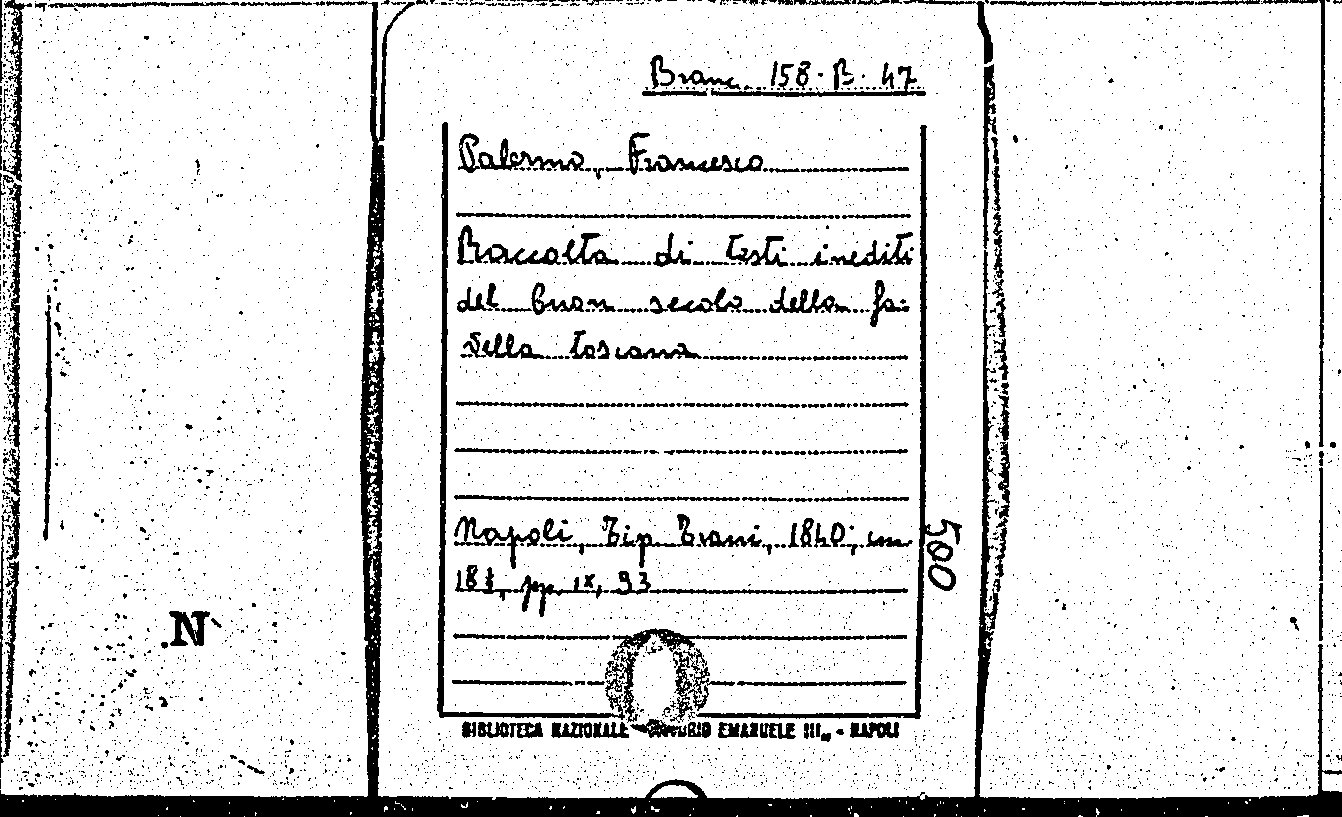 Branc. 158. B. 47
Palermo, Francesco
Raccolta di testi inediti
del buon secolo della fa-
vella toscana
Napoli, Tip. Trani, 1840; cm
18½, pp. IX, 93
500
.N
BIBLIOTECA NAZIONALE VITTORIO EMANUELE III„ - NAPOLI